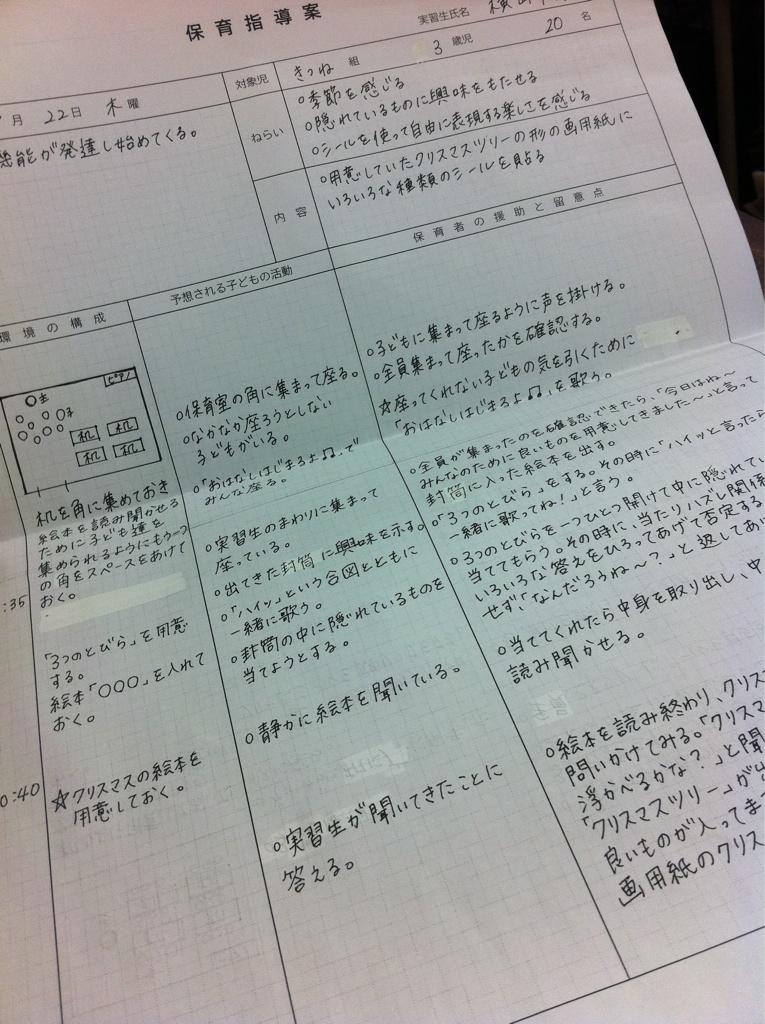 保育指導案
実習生氏名
月 22日 木曜
対象児
きつね 組 3歳児 20名
能が発達し始めてくる。
ねらい
○季節を感じる
○隠れているものに興味をもたせる
○シールを使って自由に表現する楽しさを感じる
内容
○用意していたクリスマスツリーの形の画用紙に
いろいろな種類のシールを貼る
環境の構成
予想される子どもの活動
保育者の援助と留意点
ピアノ
○主
○子
机 机
机 机
机を角に集めておき
絵本を読み聞かせる
ために子ども達を
集められるようにもう一つ
の角をスペースをあけて
おく。
:35
「3つのとびら」を用意
する。
絵本「○○○」を入れて
おく。
0:40
☆クリスマスの絵本を
用意しておく。
○保育室の角に集まって座る。
○なかなか座ろうとしない
子どもがいる。
○「おはなしはじまるよ♫」で
みんな座る。
○実習生のまわりに集まって
座っている。
○出てきた封筒に興味を示す。
○「ハイッ」という合図とともに
一緒に歌う。
○封筒の中に隠れているものを
当てようとする。
○静かに絵本を聞いている。
○実習生が聞いてきたことに
答える。
○子どもに集まって座るように声を掛ける。
○全員集まって座ったかを確認する。
☆座ってくれない子どもの気を引くために
「おはなしはじまるよ♫」を歌う。
○全員が集まったのを確認できたら、「今日はね〜
みんなのために良いものを用意してきました〜」と言って
封筒に入った絵本を出す。
○「3つのとびら」をする。その時に「ハイッと言ったら
一緒に歌ってね!」と言う。
○3つのとびらを一つひとつ開けて中に隠れてい
当ててもらう。その時に、当たりハズレ関係
いろいろな答えをひろってあげて否定する
せず、「なんだろうね〜?」と返してあ
○当ててくれたら中身を取り出し、中
読み聞かせる。
○絵本を読み終わり、クリス
問いかけてみる。「クリスマ
浮かべるかな?」と聞
「クリスマスツリー」が出
良いものが入ってま
画用紙のクリス